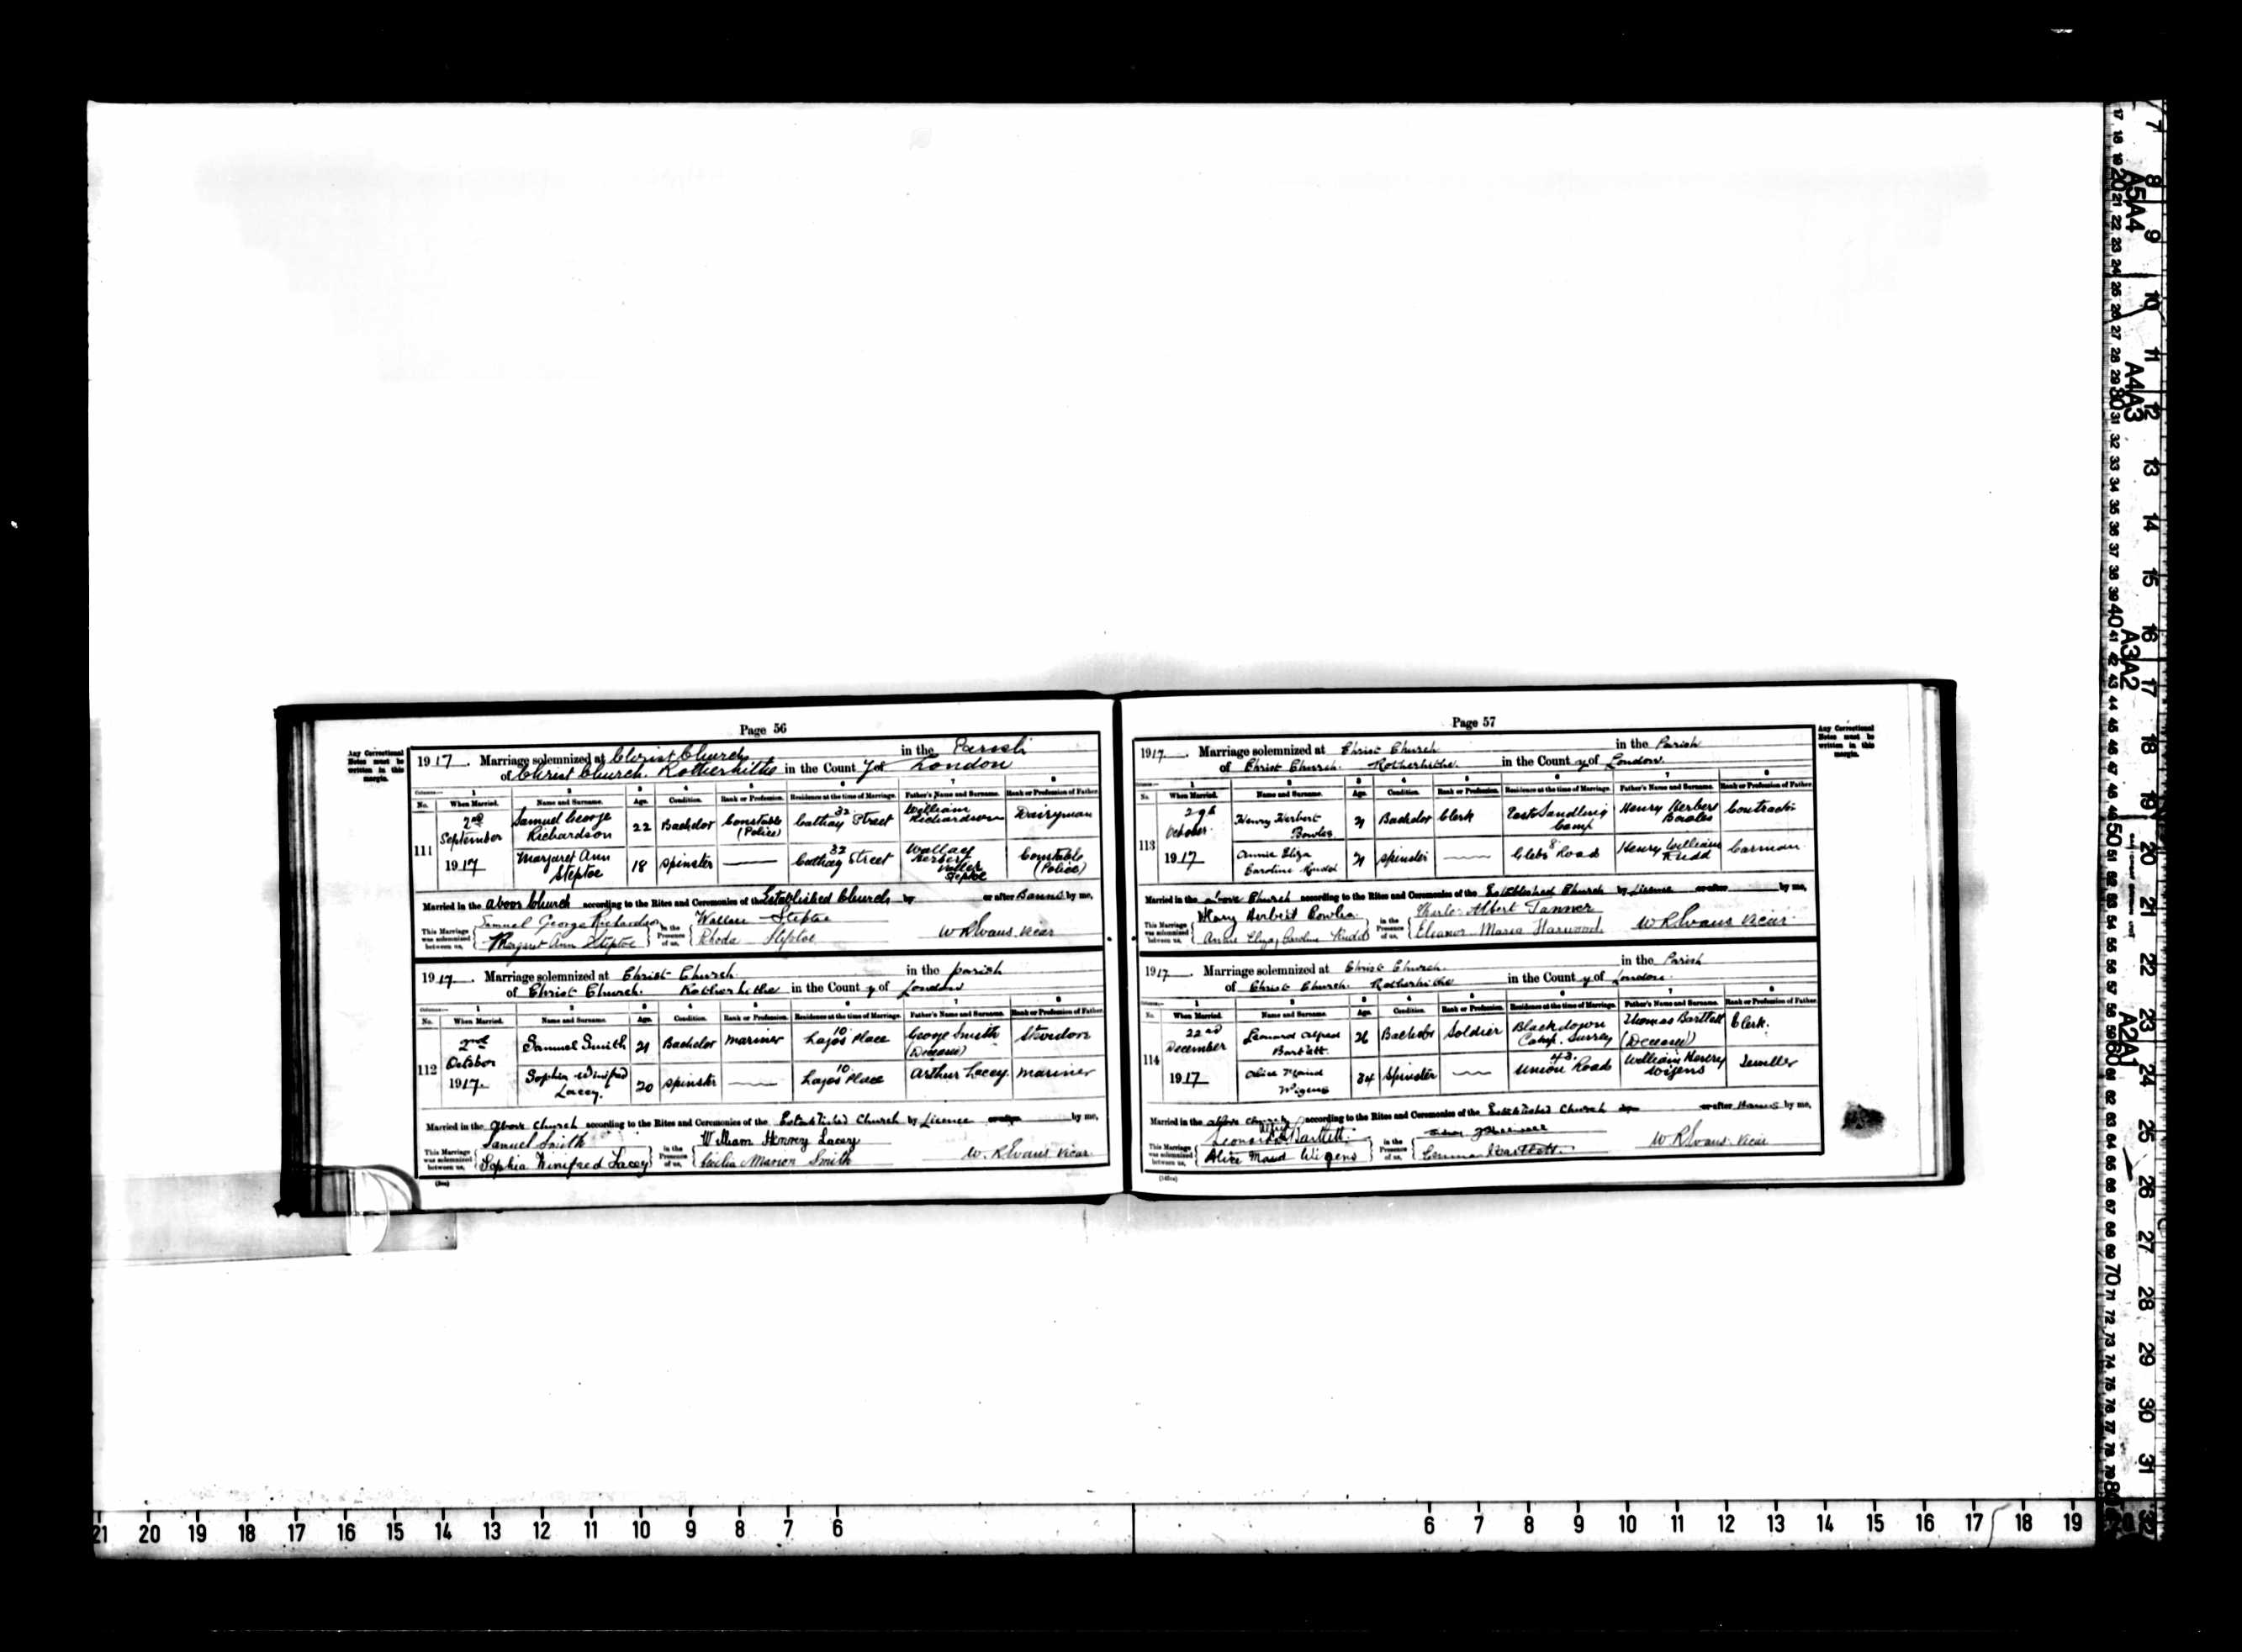 Page 56
Any Corrections
Notes must be
written in this
margin.
1917. Marriage solemnized at Christ Church in the Parish
of Christ Church. Rotherhithe in the County of London
Columns:— 1 2 3 4 5 6 7 8
No. When Married. Name and Surname. Age. Condition. Rank or Profession. Residence at the time of Marriage. Father's Name and Surname. Rank or Profession of Father.
111 2nd September 1917 Samuel George Richardson 22 Bachelor Constable (Police) 32 Cathay Street William Richardson Dairyman
Margaret Ann Steptoe 18 Spinster — 32 Cathay Street Herbert Steptoe Constable (Police)
Married in the above Church according to the Rites and Ceremonies of the Established Church by or after Banns by me,
This Marriage was solemnized between us, Samuel George Richardson Margaret Ann Steptoe in the Presence of us, Wallace Steptoe Rhoda Steptoe W R Evans. Vicar
1917. Marriage solemnized at Christ Church in the parish
of Christ Church. Rotherhithe in the County of London
Columns:— 1 2 3 4 5 6 7 8
No. When Married. Name and Surname. Age. Condition. Rank or Profession. Residence at the time of Marriage. Father's Name and Surname. Rank or Profession of Father.
112 2nd October 1917. Samuel Smith 21 Bachelor Mariner 10 Place George Smith (Deceased)
Sophia Winifred Lacey. 20 Spinster — 10 Place Arthur Lacey Mariner
Married in the above Church according to the Rites and Ceremonies of the Established Church by Licence or after by me,
This Marriage was solemnized between us, Samuel Smith Sophia Winifred Lacey in the Presence of us, William Henrey Lacey Cecilia Marion Smith W. R Evans Vicar.
Page 57
Any Corrections
Notes must be
written in this
margin.
1917. Marriage solemnized at Christ Church in the Parish
of Christ Church. Rotherhithe. in the County of London.
Columns:— 1 2 3 4 5 6 7 8
No. When Married. Name and Surname. Age. Condition. Rank or Profession. Residence at the time of Marriage. Father's Name and Surname. Rank or Profession of Father.
113 29th October. 1917 Henry Herbert Bowles 21 Bachelor Clerk East Sandling Camp Henry Herbert Bowles Contractor
Annie Eliza Caroline Rudd 21 Spinster — 8 Glebe Road Henry William Rudd Carman
Married in the above Church according to the Rites and Ceremonies of the Established Church by Licence or after by me,
This Marriage was solemnized between us, Herbert Bowles Annie Eliza Caroline Rudd in the Presence of us, Albert Tanner Eleanor Maria Harwood W R Evans Vicar
1917. Marriage solemnized at Christ Church. in the Parish
of Christ Church. Rotherhithe in the County of London.
Columns:— 1 2 3 4 5 6 7 8
No. When Married. Name and Surname. Age. Condition. Rank or Profession. Residence at the time of Marriage. Father's Name and Surname. Rank or Profession of Father.
114 22nd December 1917 Leonard Alfred Bartlett. 26 Bachelor Soldier Blackdown Camp. Surrey Thomas Bartlett (Deceased) Clerk.
Alice Maud Wigens 24 Spinster — 43. Union Road William Henry Wigens Jeweller
Married in the above church according to the Rites and Ceremonies of the Established Church by or after Banns by me,
This Marriage was solemnized between us, Leonard Alfred Bartlett. Alice Maud Wigens in the Presence of us, Emma Bartlett. W R Evans. Vicar
21 20 19 18 17 16 15 14 13 12 11 10 9 8 7 6 6 7 8 9 10 11 12 13 14 15 16 17 18 19
A5 A4
A4 A3
A3 A2
A2 A1